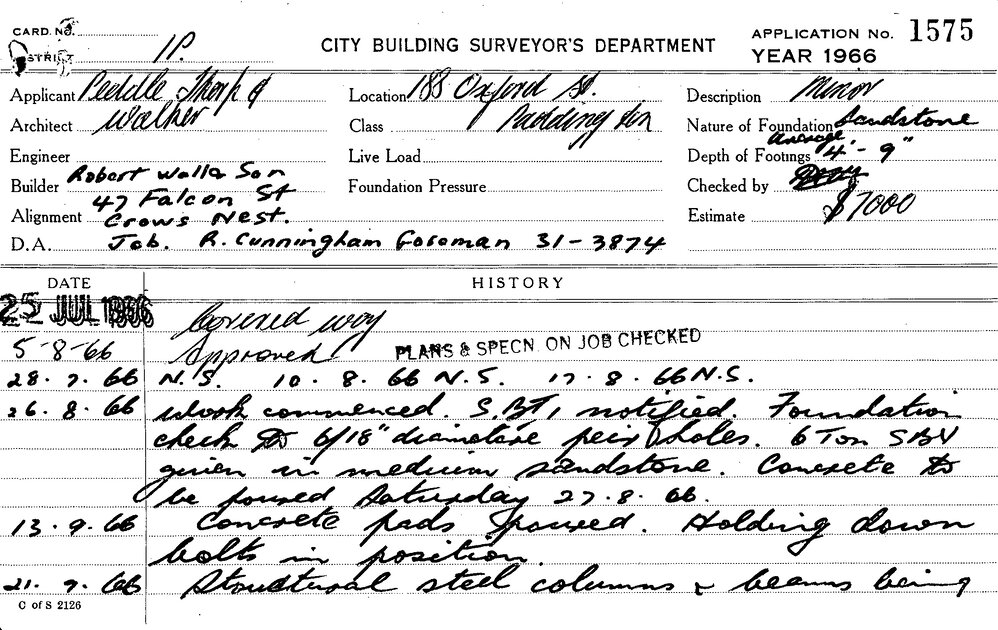 CARD. No.
DISTRICT 1P.
CITY BUILDING SURVEYOR'S DEPARTMENT
APPLICATION No. 1575
YEAR 1966
Applicant Peddle Thorp &
Architect Walker
Engineer
Builder Robert Wall & Son
47 Falcon St
Alignment Crows Nest.
D.A. Job. R. Cunningham Foreman 31-3874
Location 188 Oxford St.
Class Paddington
Live Load
Foundation Pressure
Description Minor
Nature of Foundation Sandstone
Average
Depth of Footings 4' - 9"
Checked by
Estimate $7000
DATE HISTORY
25 JUL 1966 Covered way
5-8-66 Approved PLANS & SPECN. ON JOB CHECKED
28. 7. 66 N.S. 10. 8. 66 N.S. 17. 8. 66 N.S.
26. 8. 66 Work commenced. notified. Foundation
check 6/18" diameter holes. 6 Ton
given in medium sandstone. Concrete to
be poured Saturday 27.8.66.
13. 9. 66 Concrete pads poured. Holding down
bolts in position.
21. 9. 66 Structural steel columns & beams being
C of S 2126